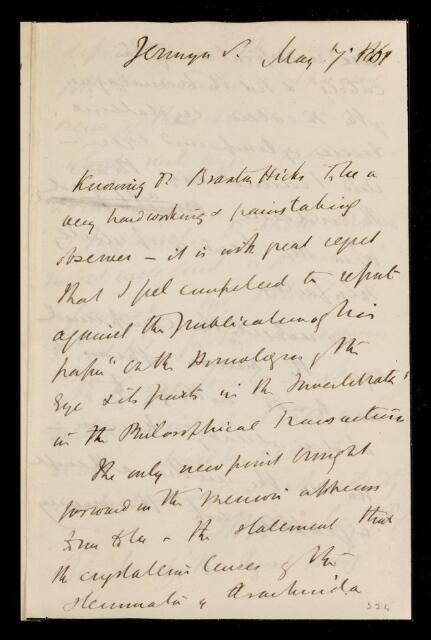 Jermyn S. May 7. 1861
Knowing Dr Braxton Hicks to be a
very hardworking & painstaking
observer – it is with great regret
that I feel compelled to report
against the publication of his
paper "On the Homologies of the
Eye & its parts in the Invertebrata"
in the Philosophical Transactions
The only new point brought
forward in the memoir appears
to me to be – the statement that
the crystalline lenses of the
stemmata of Arachnida
324